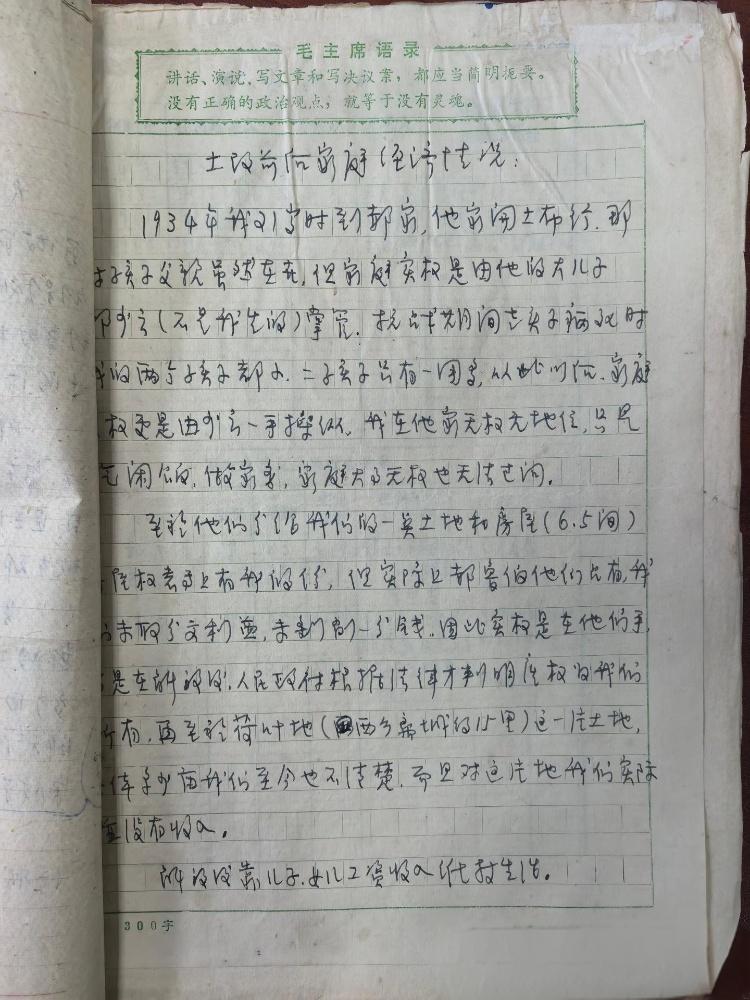 毛主席语录
讲话、演说、写文章和写决议案，都应当简明扼要。
没有正确的政治观点，就等于没有灵魂。
土改前后家庭经济情况：
1934年我21岁时到郭家，他家开土布行．那
孩子父亲虽然在世，但家庭实权是由他的大儿子
（不是我生的）掌管．抗战期间老头子病死时
我的两个孩子都小．二孩子只有一周多，从此以后．家庭
权更是由一手操纵．我在他家无权无地位，只是
吃闲饭，做家务，家庭大事无权也无法过问。
至於他们分给我们的一类土地和房屋（6.5间）
屋权书上有我的份，但实际上都害他们占有，我
未取分文利益，未到一分钱．因此实权是在他们手，
是在解放后．人民政府根据法律才判明屋权归我们
所有．再至於荷叶地（西乡离城约15里）这一片土地，
体多少亩我们至今也不清楚．而且对这片地我们实际
没有收入。
解放后靠儿子．女儿工资收入维持生活。
300字